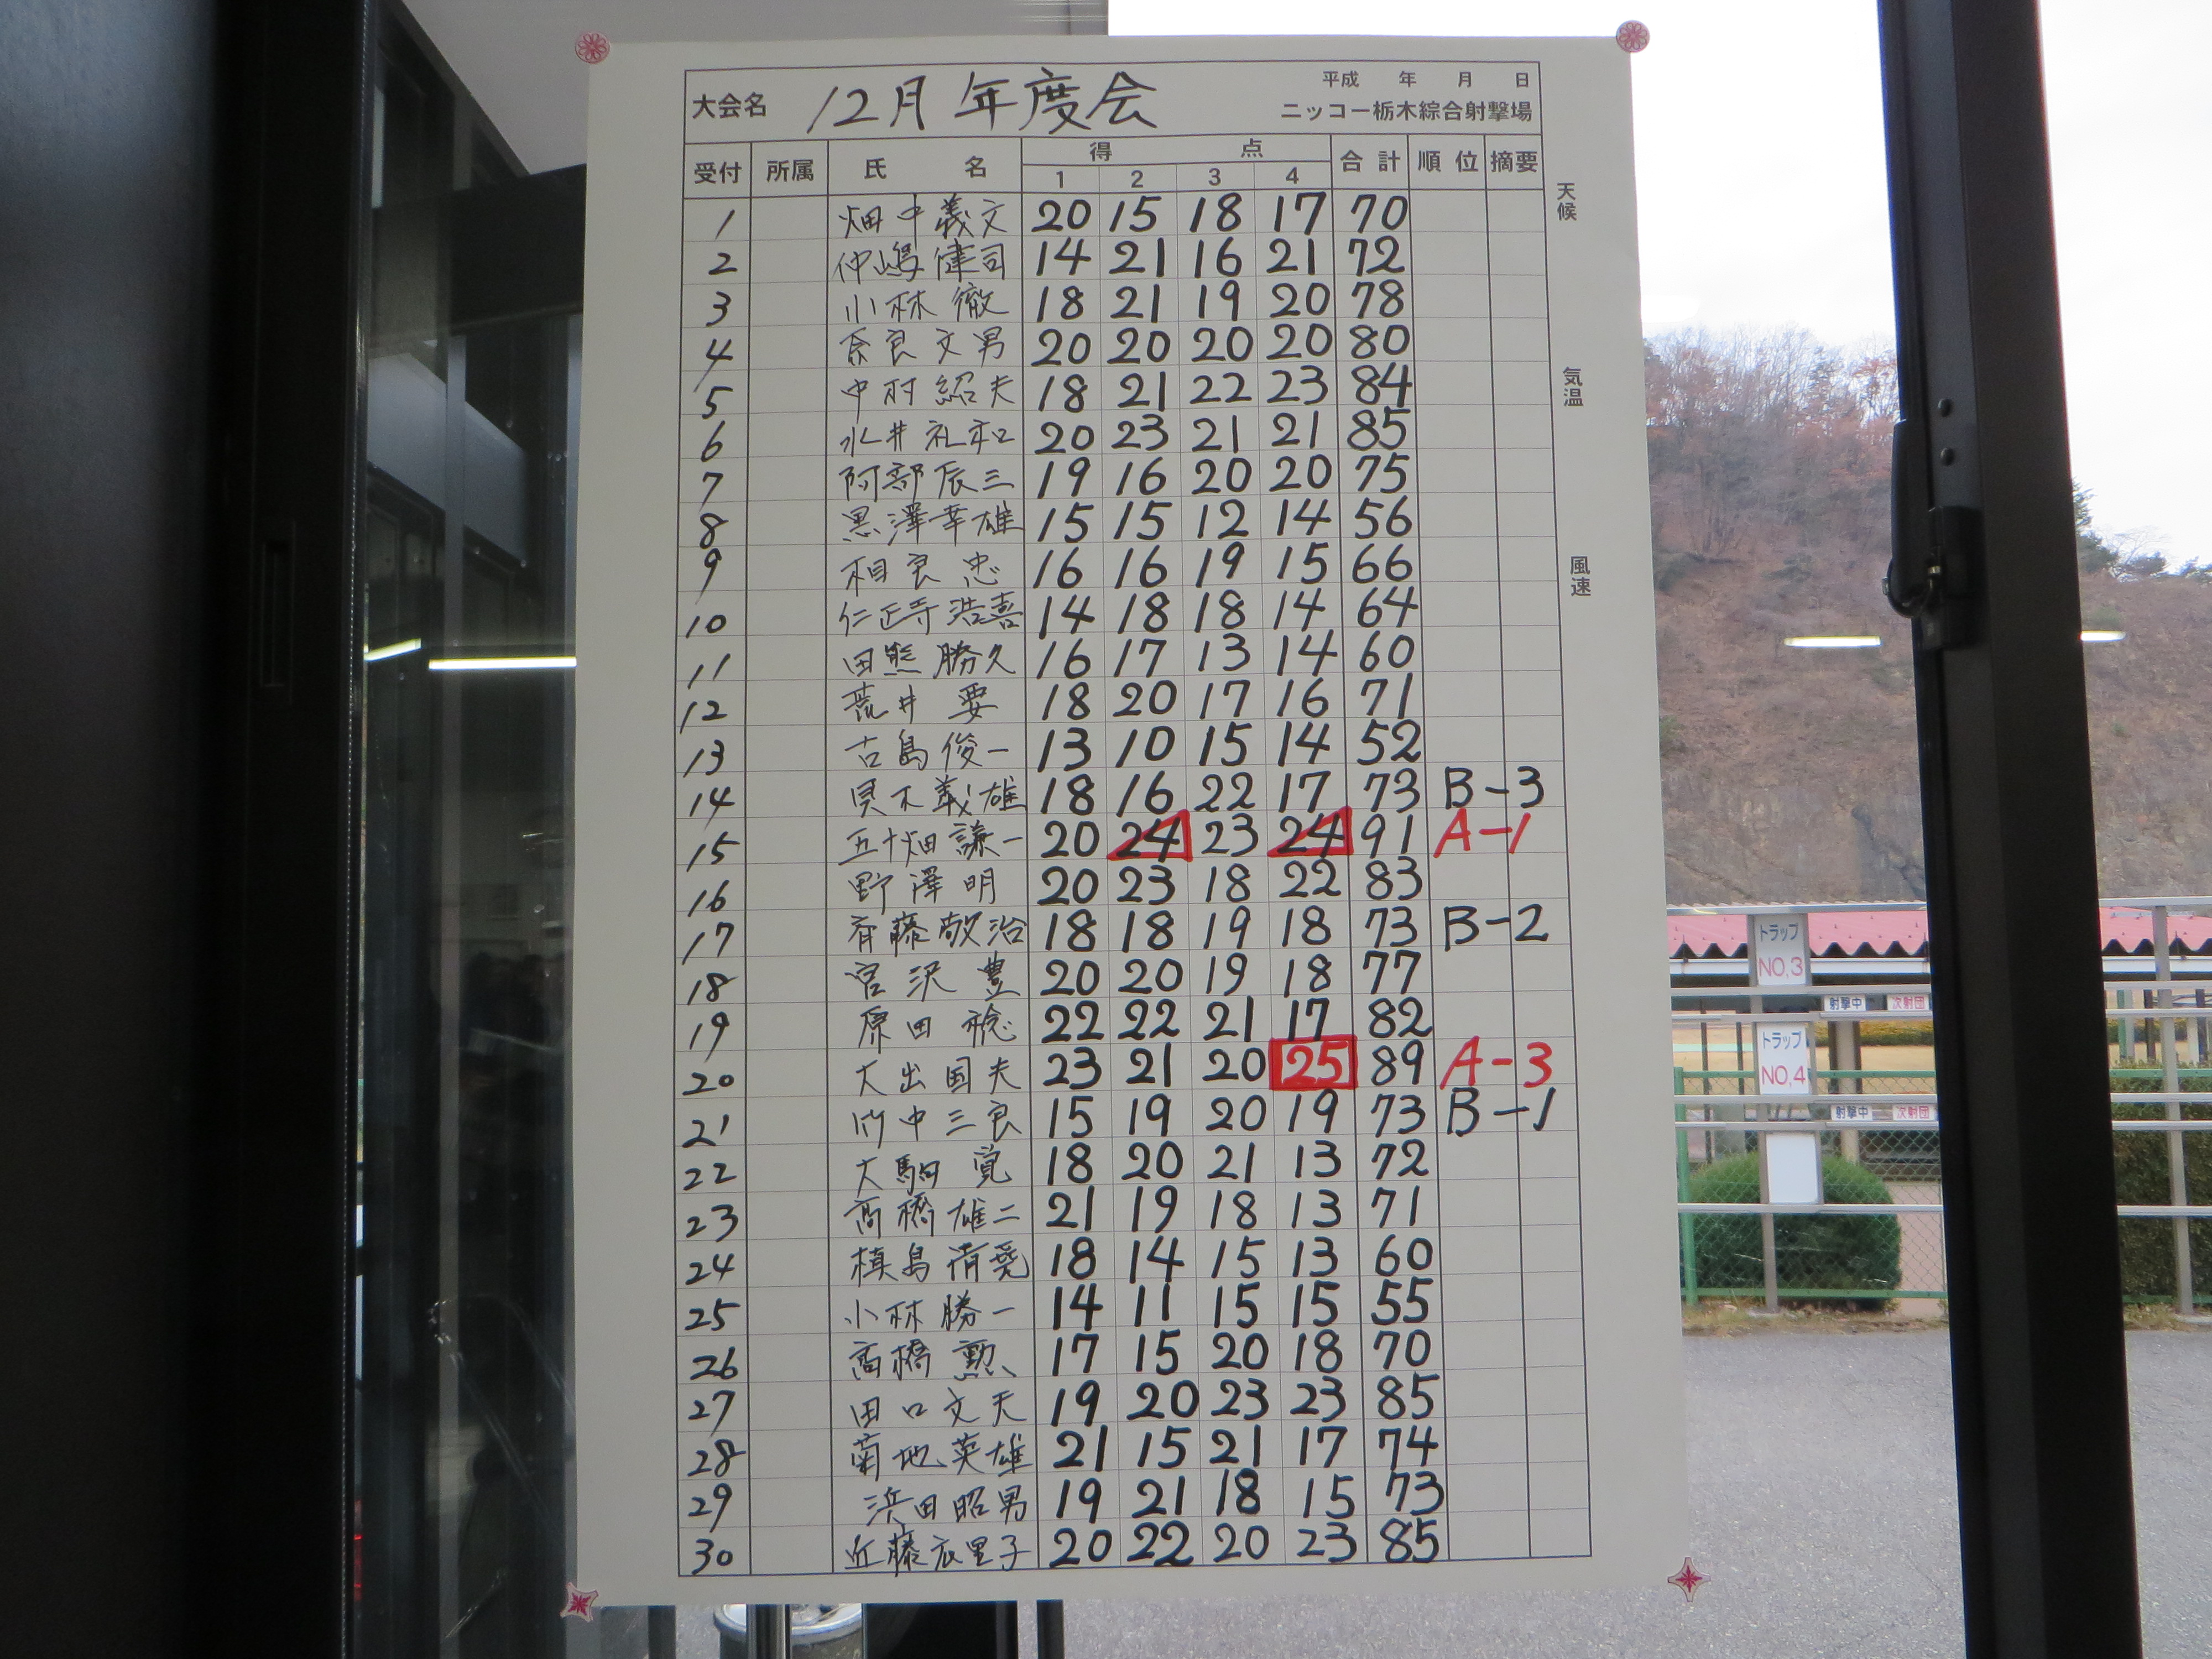 平成 年 月 日
大会名 12月 年度会 ニッコー栃木綜合射撃場
受付 所属 氏 名 得 点 合計 順位 摘要
1 2 3 4
1 畑中義文 20 15 18 17 70
2 仲嶋健司 14 21 16 21 72
3 小林 徹 18 21 19 20 78
4 奈良文男 20 20 20 20 80
5 中村紹夫 18 21 22 23 84
6 水井礼和 20 23 21 21 85
7 阿部辰三 19 16 20 20 75
8 黒澤幸雄 15 15 12 14 56
9 相良 忠 16 16 19 15 66
10 仁正寺浩喜 14 18 18 14 64
11 田熊勝久 16 17 13 14 60
12 荒井 要 18 20 17 16 71
13 古島俊一 13 10 15 14 52
14 木義雄 18 16 22 17 73 B-3
15 五十畑謙一 20 24 23 24 91 A-1
16 野澤 明 20 23 18 22 83
17 斉藤敬治 18 18 19 18 73 B-2
18 宮沢 豊 20 20 19 18 77
19 原田 稔 22 22 21 17 82
20 大出国夫 23 21 20 25 89 A-3
21 竹中三良 15 19 20 19 73 B-1
22 大駒 覚 18 20 21 13 72
23 高橋雄二 21 19 18 13 71
24 槙島清堯 18 14 15 13 60
25 小林勝一 14 11 15 15 55
26 高橋 勲 17 15 20 18 70
27 田口文夫 19 20 23 23 85
28 菊地英雄 21 15 21 17 74
29 浜田昭男 19 21 18 15 73
30 近藤衣里子 20 22 20 23 85
天候
気温
風速
トラップ
NO,3
射撃中 次射団
トラップ
NO,4
射撃中 次射団